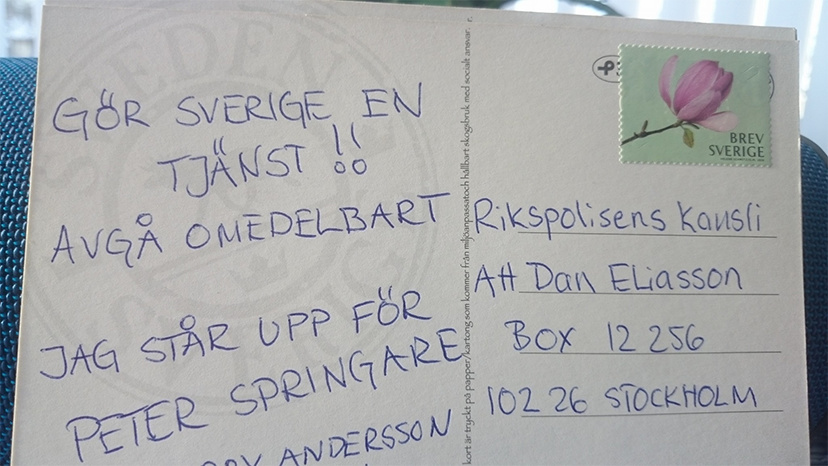 GÖR SVERIGE EN
TJÄNST !!
AVGÅ OMEDELBART
JAG STÅR UPP FÖR
PETER SPRINGARE
ANDERSSON
SWEDEN
SVERIGE
kort är tryckt på papper/kartong som kommer från miljöanpassatoch hållbart skogsbruk med socialt ansvar.
BREV
SVERIGE
Rikspolisens Kansli
Att Dan Eliasson
BOX 12 256
102 26 STOCKHOLM